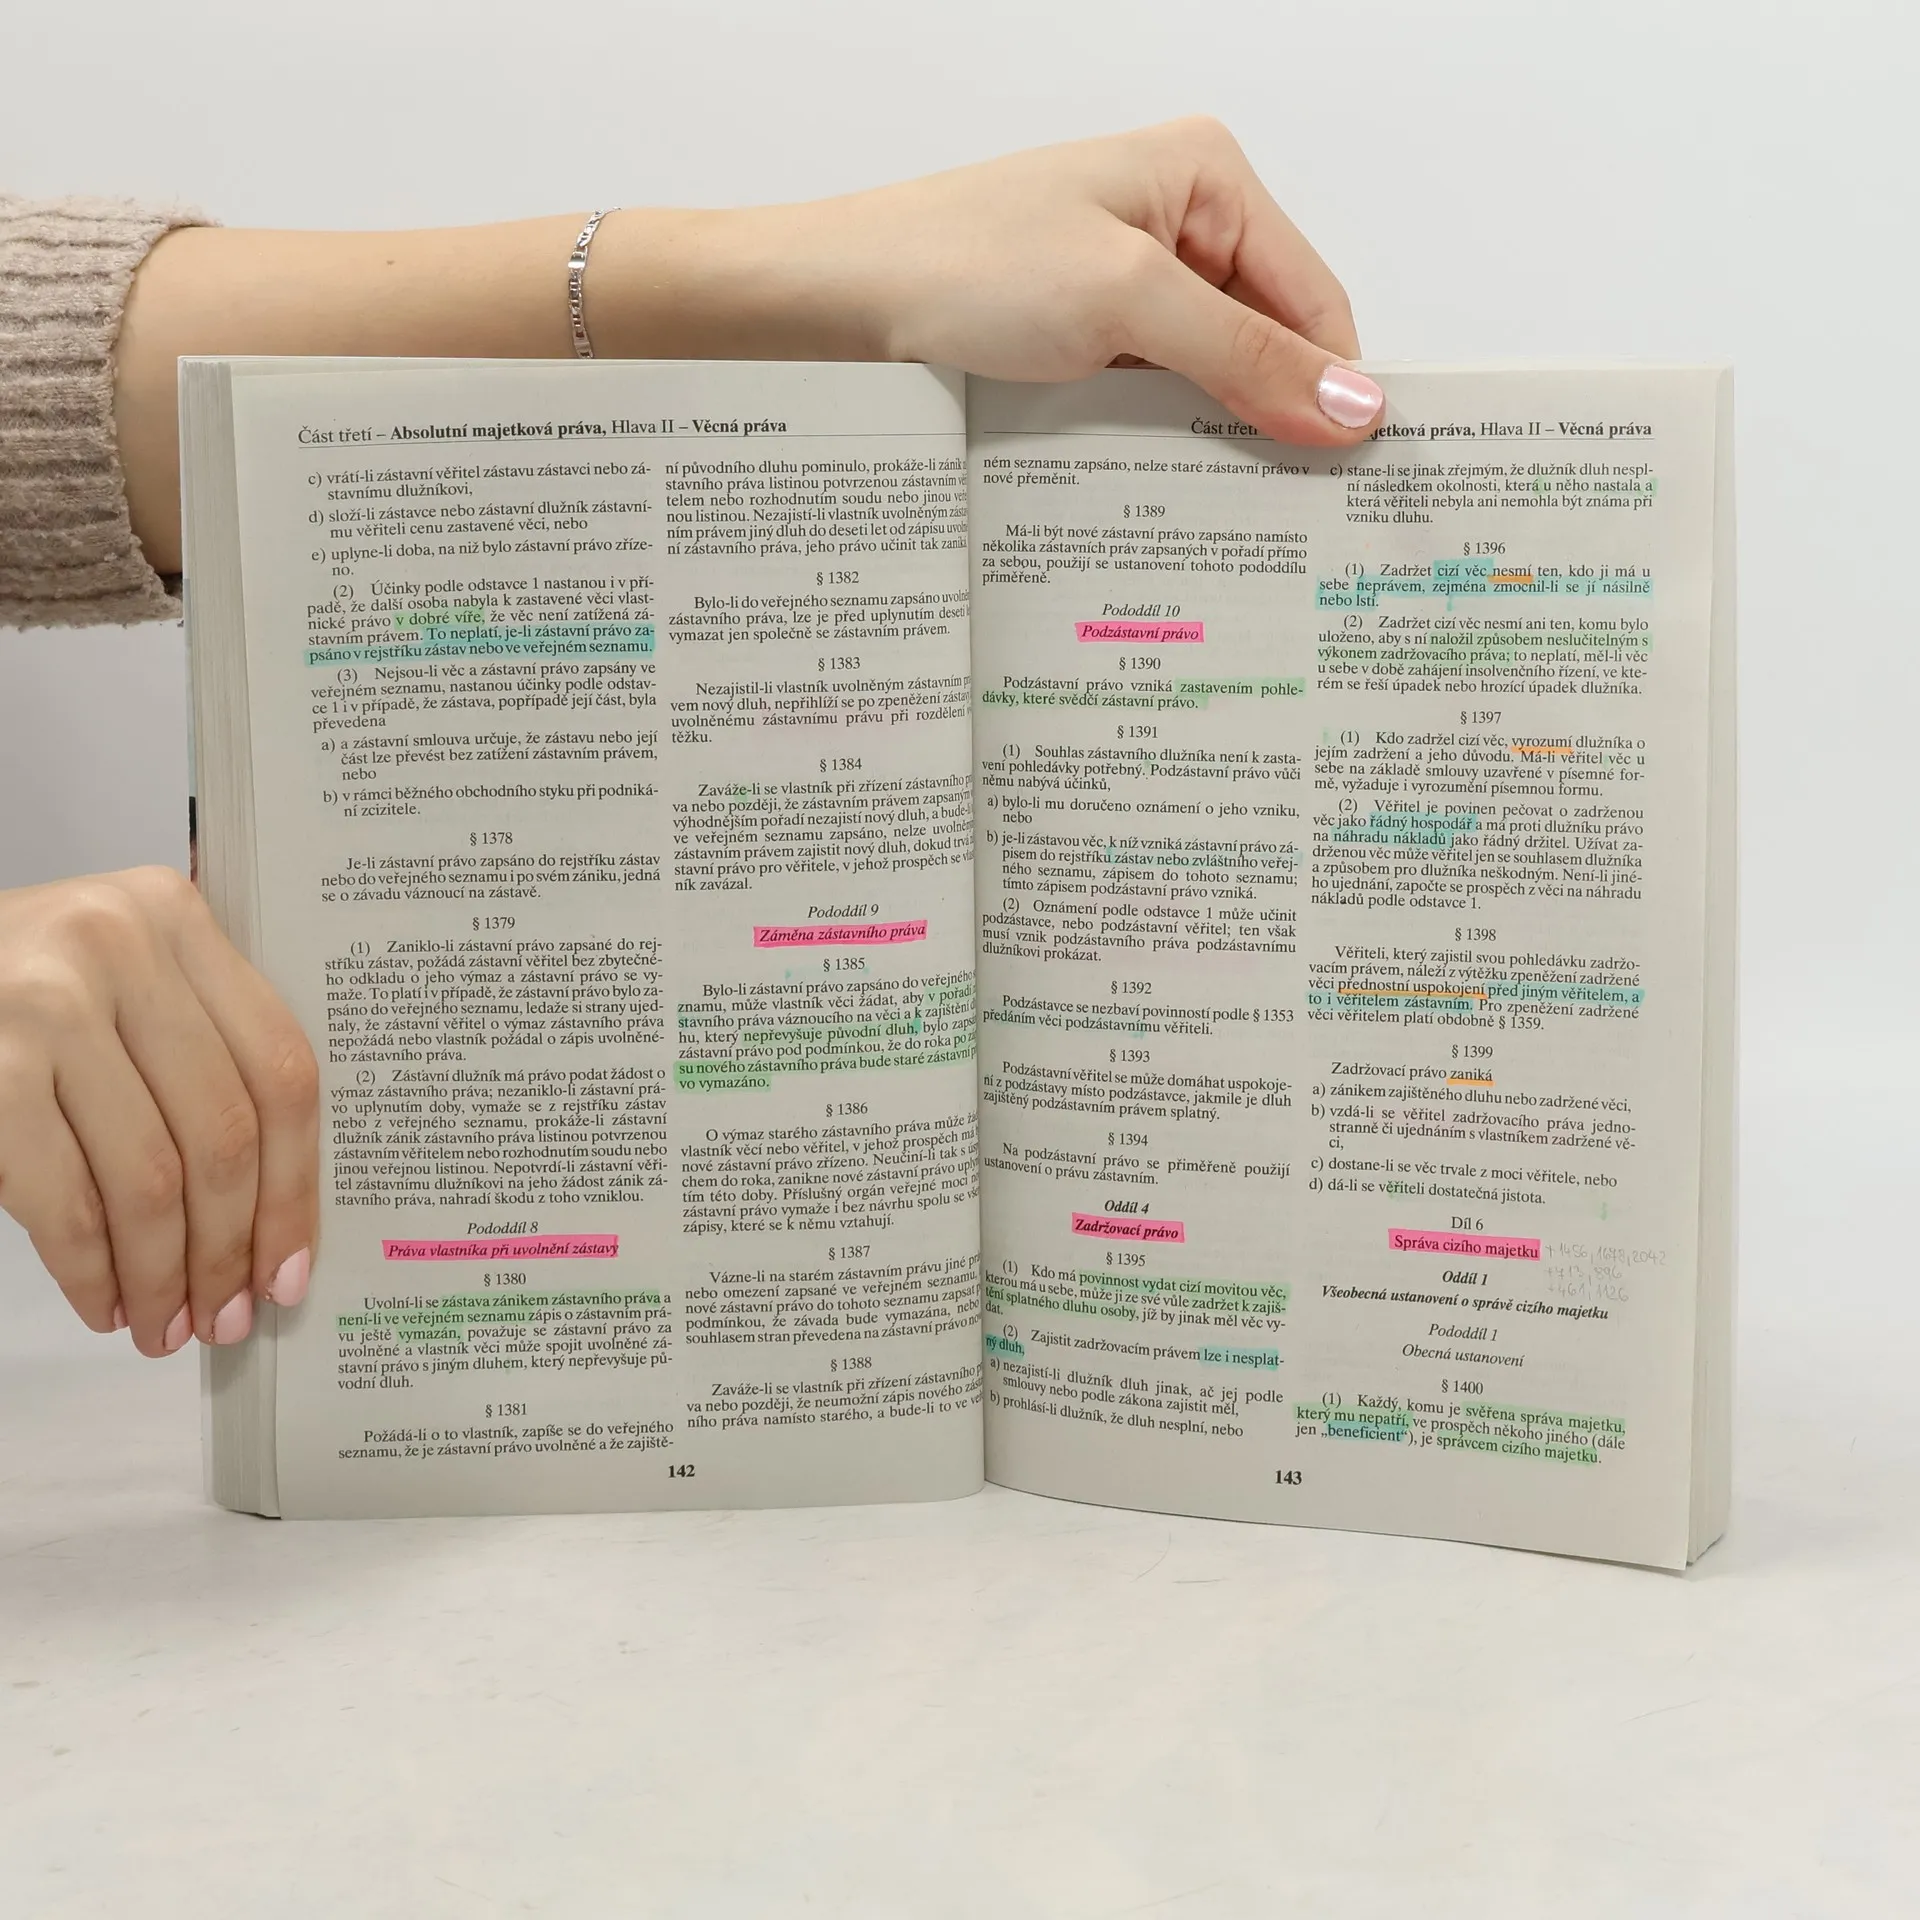 Část třetí – Absolutní majetková práva, Hlava II – Věcná práva
c) vrátí-li zástavní věřitel zástavu zástavci nebo zá-
stavnímu dlužníkovi,
d) složí-li zástavce nebo zástavní dlužník zástavní-
mu věřiteli cenu zastavené věci, nebo
e) uplyne-li doba, na niž bylo zástavní právo zříze-
no.
(2) Účinky podle odstavce 1 nastanou i v pří-
padě, že další osoba nabyla k zastavené věci vlast-
nické právo v dobré víře, že věc není zatížená zá-
stavním právem. To neplatí, je-li zástavní právo za-
psáno v rejstříku zástav nebo ve veřejném seznamu.
(3) Nejsou-li věc a zástavní právo zapsány ve
veřejném seznamu, nastanou účinky podle odstav-
ce 1 i v případě, že zástava, popřípadě její část, byla
převedena
a) a zástavní smlouva určuje, že zástavu nebo její
část lze převést bez zatížení zástavním právem,
nebo
b) v rámci běžného obchodního styku při podniká-
ní zcizitele.
§ 1378
Je-li zástavní právo zapsáno do rejstříku zástav
nebo do veřejného seznamu i po svém zániku, jedná
se o závadu váznoucí na zástavě.
§ 1379
(1) Zaniklo-li zástavní právo zapsané do rej-
stříku zástav, požádá zástavní věřitel bez zbytečné-
ho odkladu o jeho výmaz a zástavní právo se vy-
maže. To platí i v případě, že zástavní právo bylo za-
psáno do veřejného seznamu, ledaže si strany ujed-
naly, že zástavní věřitel o výmaz zástavního práva
nepožádá nebo vlastník požádal o zápis uvolněné-
ho zástavního práva.
(2) Zástavní dlužník má právo podat žádost o
výmaz zástavního práva; nezaniklo-li zástavní prá-
vo uplynutím doby, vymaže se z rejstříku zástav
nebo z veřejného seznamu, prokáže-li zástavní
dlužník zánik zástavního práva listinou potvrzenou
zástavním věřitelem nebo rozhodnutím soudu nebo
jinou veřejnou listinou. Nepotvrdí-li zástavní věři-
tel zástavnímu dlužníkovi na jeho žádost zánik zá-
stavního práva, nahradí škodu z toho vzniklou.
Pododdíl 8
Práva vlastníka při uvolnění zástavy
§ 1380
Uvolní-li se zástava zánikem zástavního práva a
není-li ve veřejném seznamu zápis o zástavním prá-
vu ještě vymazán, považuje se zástavní právo za
uvolněné a vlastník věci může spojit uvolněné zá-
stavní právo s jiným dluhem, který nepřevyšuje pů-
vodní dluh.
§ 1381
Požádá-li o to vlastník, zapíše se do veřejného
seznamu, že je zástavní právo uvolněné a že zajiště-
ní původního dluhu pominulo, prokáže-li zánik
stavního práva listinou potvrzenou zástavním
telem nebo rozhodnutím soudu nebo jinou
nou listinou. Nezajistí-li vlastník uvolněným
ním právem jiný dluh do deseti let od zápisu
ní zástavního práva, jeho právo učinit tak
§ 1382
Bylo-li do veřejného seznamu zapsáno
zástavního práva, lze je před uplynutím deseti
vymazat jen společně se zástavním právem.
§ 1383
Nezajistil-li vlastník uvolněným zástavním
vem nový dluh, nepřihlíží se po zpeněžení
uvolněnému zástavnímu právu při rozdělení
těžku.
§ 1384
Zaváže-li se vlastník při zřízení zástavního
va nebo později, že zástavním právem zapsaným
výhodnějším pořadí nezajistí nový dluh, a bude-li
ve veřejném seznamu zapsáno, nelze
zástavním právem zajistit nový dluh, dokud
stavní právo pro věřitele, v jehož prospěch se
ník zavázal.
Pododdíl 9
Záměna zástavního práva
§ 1385
Bylo-li zástavní právo zapsáno do veřejného
znamu, může vlastník věci žádat, aby v pořadí
stavního práva váznoucího na věci a k zajištění
hu, který nepřevyšuje původní dluh, bylo
zástavní právo pod podmínkou, že do roka po
su nového zástavního práva bude staré zástavní
vo vymazáno.
§ 1386
O výmaz starého zástavního práva může
vlastník věcí nebo věřitel, v jehož prospěch má
nové zástavní právo zřízeno. Neučiní-li tak s
chem do roka, zanikne nové zástavní právo
tím této doby. Příslušný orgán veřejné moci
zástavní právo vymaže i bez návrhu spolu se
zápisy, které se k němu vztahují.
§ 1387
Vázne-li na starém zástavním právu jiné
nebo omezení zapsané ve veřejném seznamu,
nové zástavní právo do tohoto seznamu zapsat
podmínkou, že závada bude vymazána, nebo
souhlasem stran převedena na zástavní právo
§ 1388
Zaváže-li se vlastník při zřízení zástavního
va nebo později, že neumožní zápis nového
ního práva namísto starého, a bude-li to ve
142
Část třetí majetková práva, Hlava II – Věcná práva
ném seznamu zapsáno, nelze staré zástavní právo v
nové přeměnit.
§ 1389
Má-li být nové zástavní právo zapsáno namísto
několika zástavních práv zapsaných v pořadí přímo
za sebou, použijí se ustanovení tohoto pododdílu
přiměřeně.
Pododdíl 10
Podzástavní právo
§ 1390
Podzástavní právo vzniká zastavením pohle-
dávky, které svědčí zástavní právo.
§ 1391
(1) Souhlas zástavního dlužníka není k zasta-
vení pohledávky potřebný. Podzástavní právo vůči
němu nabývá účinků,
a) bylo-li mu doručeno oznámení o jeho vzniku,
nebo
b) je-li zástavou věc, k níž vzniká zástavní právo zá-
pisem do rejstříku zástav nebo zvláštního veřej-
ného seznamu, zápisem do tohoto seznamu;
tímto zápisem podzástavní právo vzniká.
(2) Oznámení podle odstavce 1 může učinit
podzástavce, nebo podzástavní věřitel; ten však
musí vznik podzástavního práva podzástavnímu
dlužníkovi prokázat.
§ 1392
Podzástavce se nezbaví povinností podle § 1353
předáním věci podzástavnímu věřiteli.
§ 1393
Podzástavní věřitel se může domáhat uspokoje-
ní z podzástavy místo podzástavce, jakmile je dluh
zajištěný podzástavním právem splatný.
§ 1394
Na podzástavní právo se přiměřeně použijí
ustanovení o právu zástavním.
Oddíl 4
Zadržovací právo
§ 1395
(1) Kdo má povinnost vydat cizí movitou věc,
kterou má u sebe, může ji ze své vůle zadržet k zajiš-
tění splatného dluhu osoby, jíž by jinak měl věc vy-
dat.
(2) Zajistit zadržovacím právem lze i nesplat-
ný dluh,
a) nezajistí-li dlužník dluh jinak, ač jej podle
smlouvy nebo podle zákona zajistit měl,
b) prohlásí-li dlužník, že dluh nesplní, nebo
c) stane-li se jinak zřejmým, že dlužník dluh nespl-
ní následkem okolnosti, která u něho nastala a
která věřiteli nebyla ani nemohla být známa při
vzniku dluhu.
§ 1396
(1) Zadržet cizí věc nesmí ten, kdo ji má u
sebe neprávem, zejména zmocnil-li se jí násilně
nebo lstí.
(2) Zadržet cizí věc nesmí ani ten, komu bylo
uloženo, aby s ní naložil způsobem neslučitelným s
výkonem zadržovacího práva; to neplatí, měl-li věc
u sebe v době zahájení insolvenčního řízení, ve kte-
rém se řeší úpadek nebo hrozící úpadek dlužníka.
§ 1397
(1) Kdo zadržel cizí věc, vyrozumí dlužníka o
jejím zadržení a jeho důvodu. Má-li věřitel věc u
sebe na základě smlouvy uzavřené v písemné for-
mě, vyžaduje i vyrozumění písemnou formu.
(2) Věřitel je povinen pečovat o zadrženou
věc jako řádný hospodář a má proti dlužníku právo
na náhradu nákladů jako řádný držitel. Užívat za-
drženou věc může věřitel jen se souhlasem dlužníka
a způsobem pro dlužníka neškodným. Není-li jiné-
ho ujednání, započte se prospěch z věci na náhradu
nákladů podle odstavce 1.
§ 1398
Věřiteli, který zajistil svou pohledávku zadržo-
vacím právem, náleží z výtěžku zpeněžení zadržené
věci přednostní uspokojení před jiným věřitelem, a
to i věřitelem zástavním. Pro zpeněžení zadržené
věci věřitelem platí obdobně § 1359.
§ 1399
Zadržovací právo zaniká
a) zánikem zajištěného dluhu nebo zadržené věci,
b) vzdá-li se věřitel zadržovacího práva jedno-
stranně či ujednáním s vlastníkem zadržené vě-
ci,
c) dostane-li se věc trvale z moci věřitele, nebo
d) dá-li se věřiteli dostatečná jistota.
Díl 6
Správa cizího majetku + 1456, 1678, 2042
+ 713, 896
+ 461, 1126
Oddíl 1
Všeobecná ustanovení o správě cizího majetku
Pododdíl 1
Obecná ustanovení
§ 1400
(1) Každý, komu je svěřena správa majetku,
který mu nepatří, ve prospěch někoho jiného (dále
jen „beneficient“), je správcem cizího majetku.
143